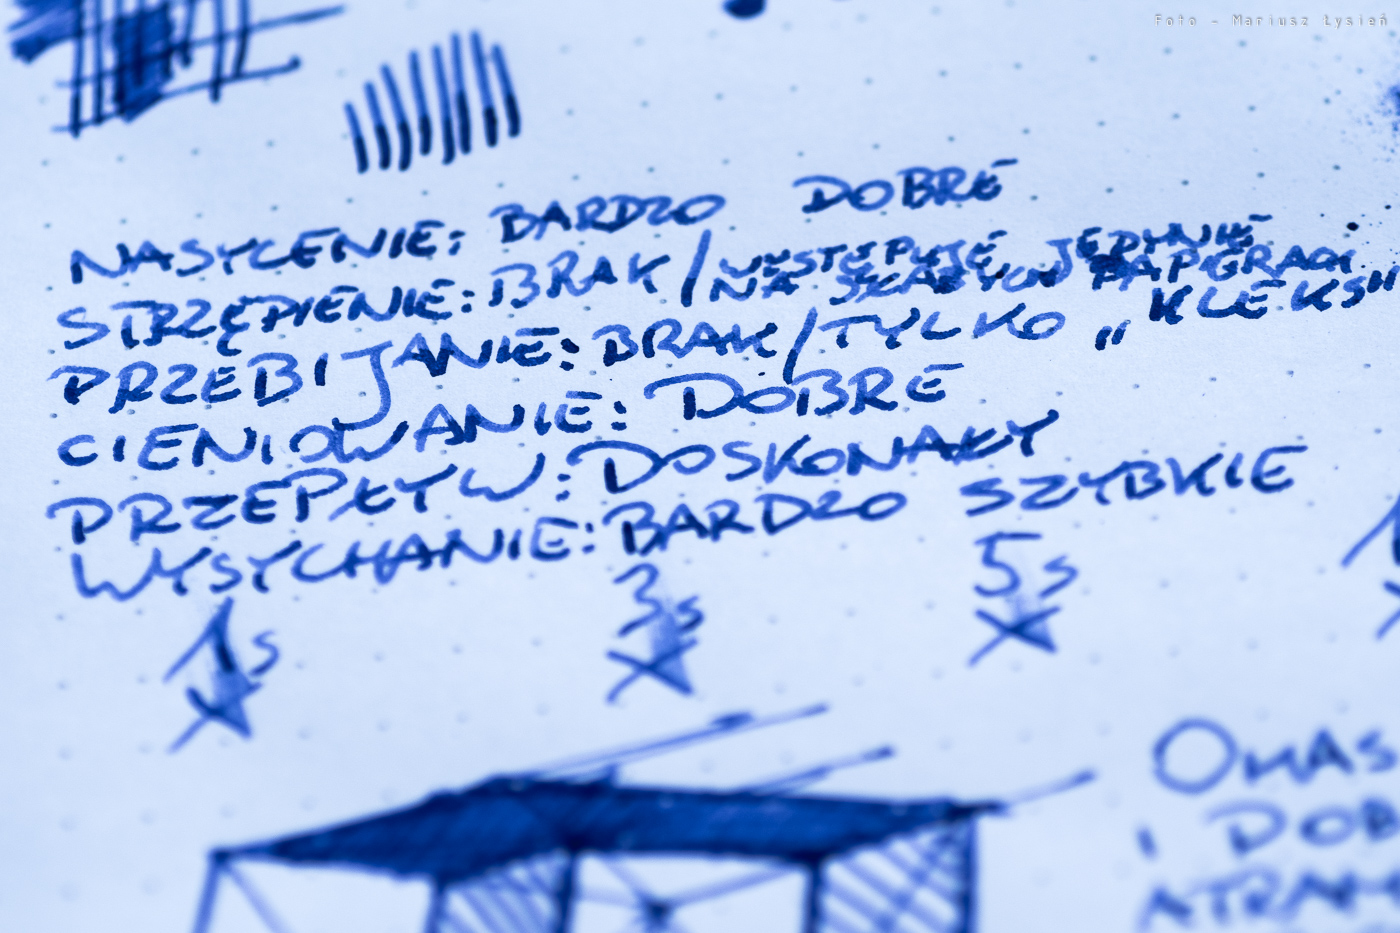 Foto - Mariusz Łysień
NASYCENIE: BARDZO DOBRE
STRZĘPIENIE: BRAK / WYSTĘPUJE JEDYNIE
NA SŁABYCH PAPIERACH
PRZEBIJANIE: BRAK / TYLKO „KLEKS"
CIENIOWANIE: DOBRE
PRZEPŁYW: DOSKONAŁY
WYSYCHANIE: BARDZO SZYBKIE
1s 3s 5s
I